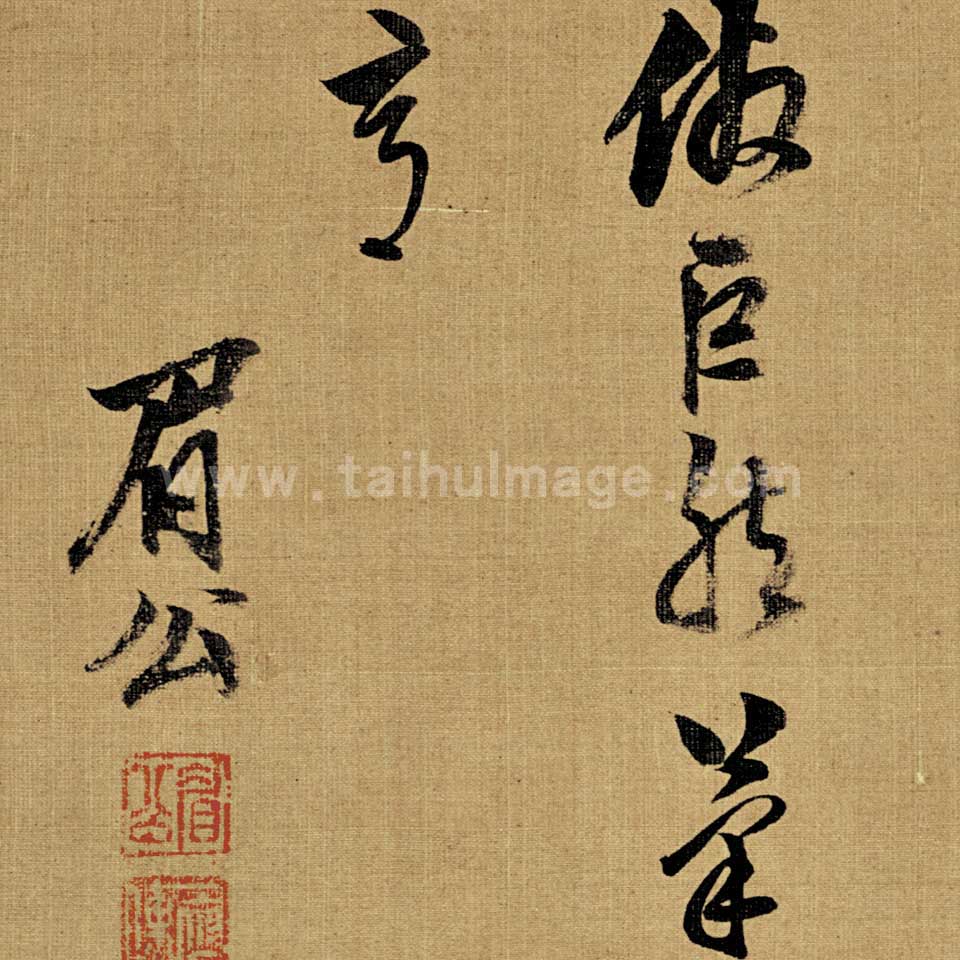 倣巨然筆
亭
眉公
眉公
www.taihuImage.com